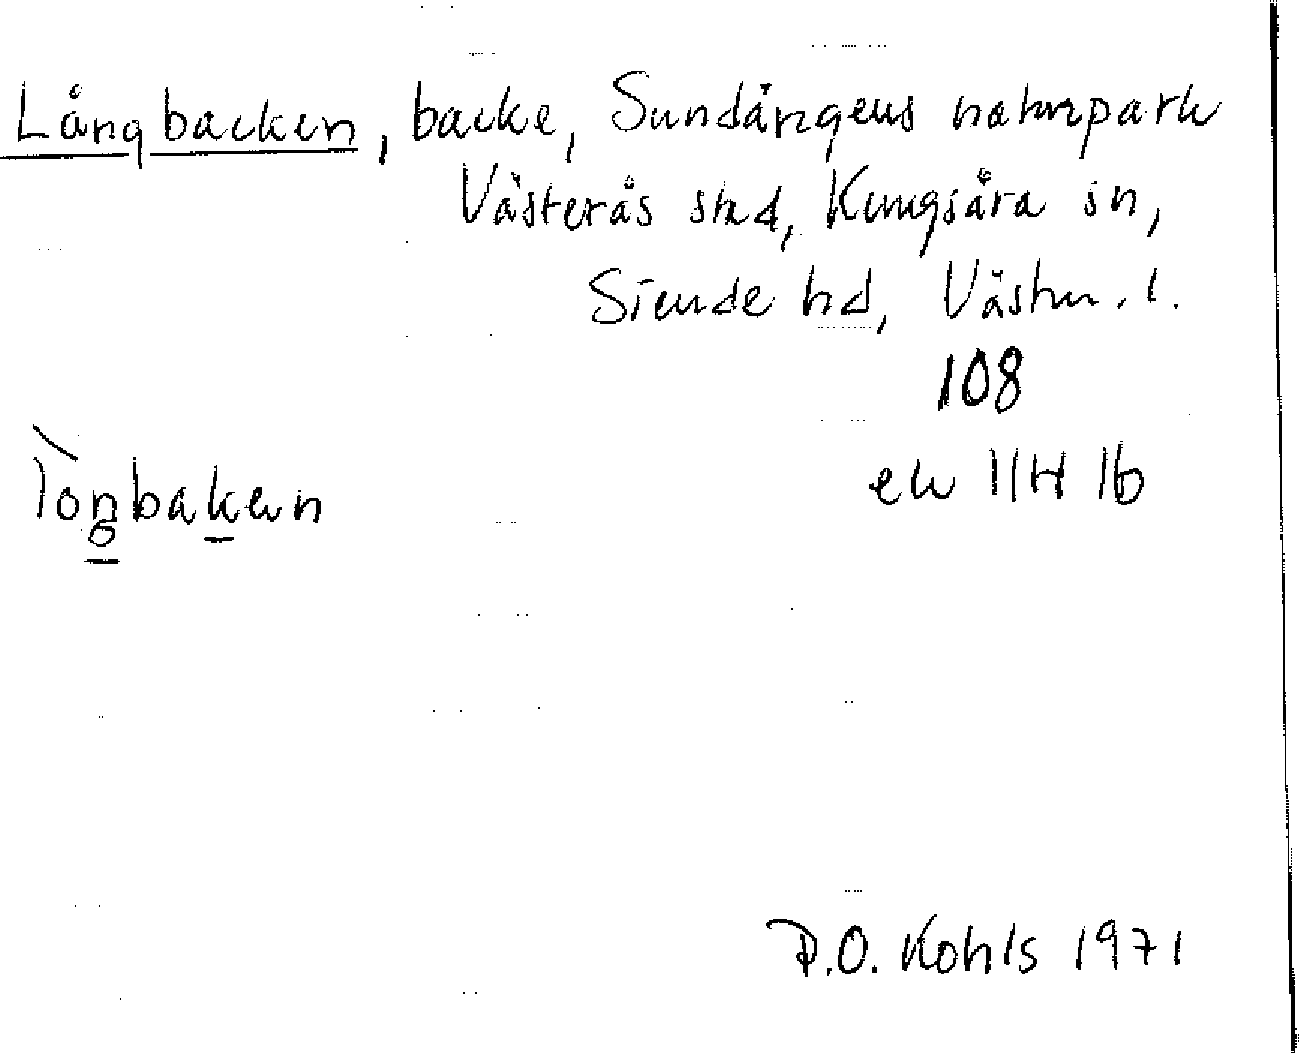 Långbacken, backe, Sundängens naturpark
Västerås stad, Kungsåra sn,
Siende hd, Västm. l.
108
ek 11H 1b
lòŋbaken
P.O. Kohls 1971